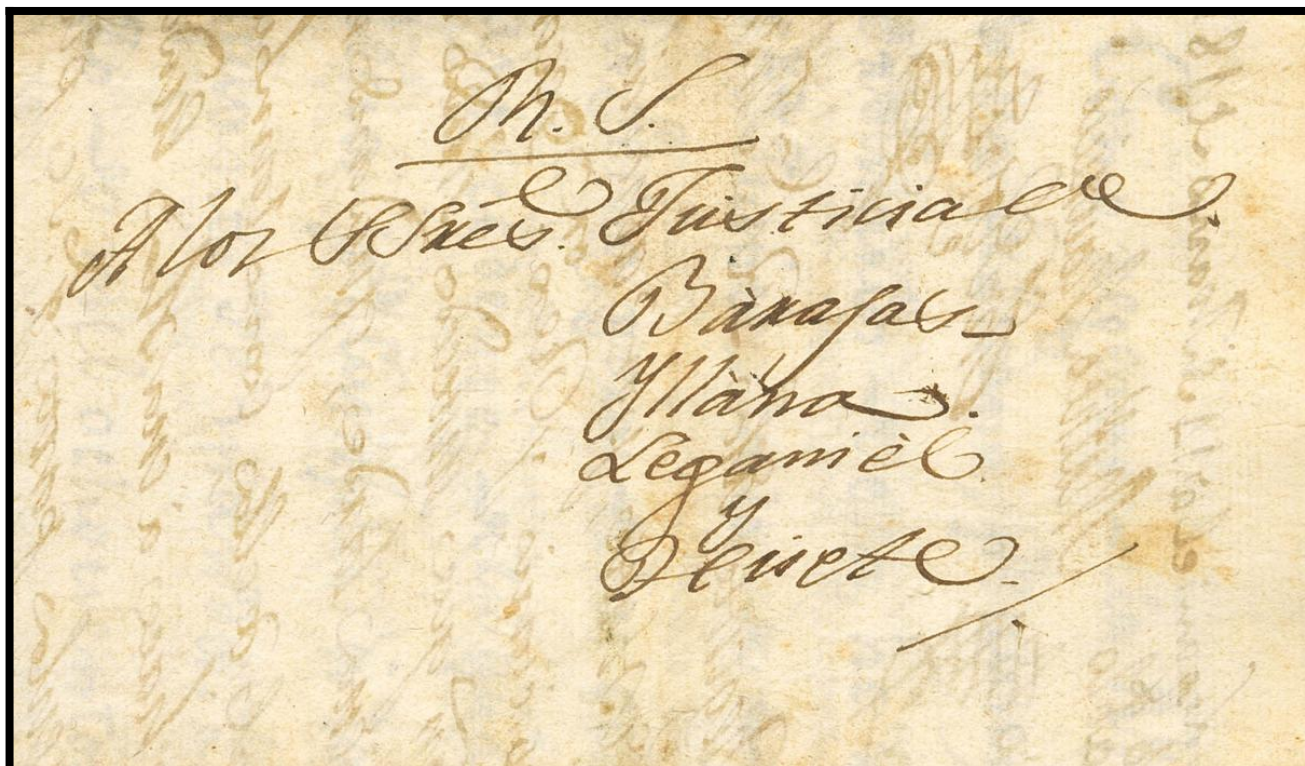 R. S.
A los SSres. Justicia de
Bàrajas
Yllàna.
Leganièl
y
Huete.